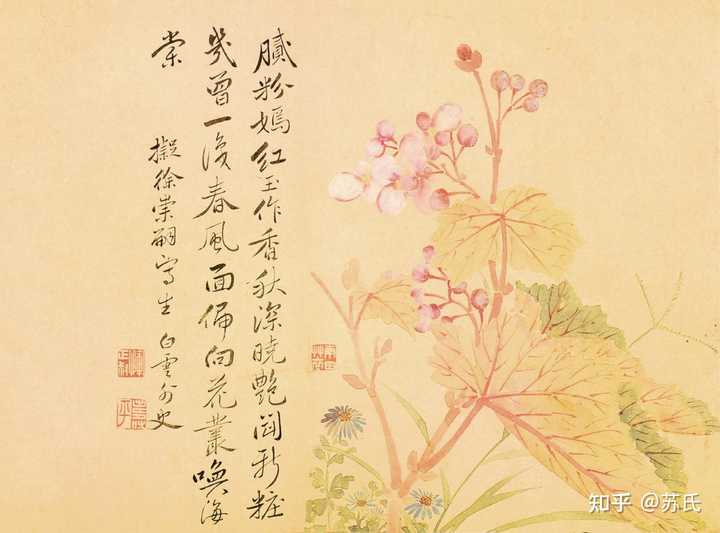 膩粉嫣紅玉作香秋深曉艷鬪新粧
幾曾一春風面偏向花叢喚海
棠
擬徐崇嗣寫生 白雲外史
知乎 @苏氏